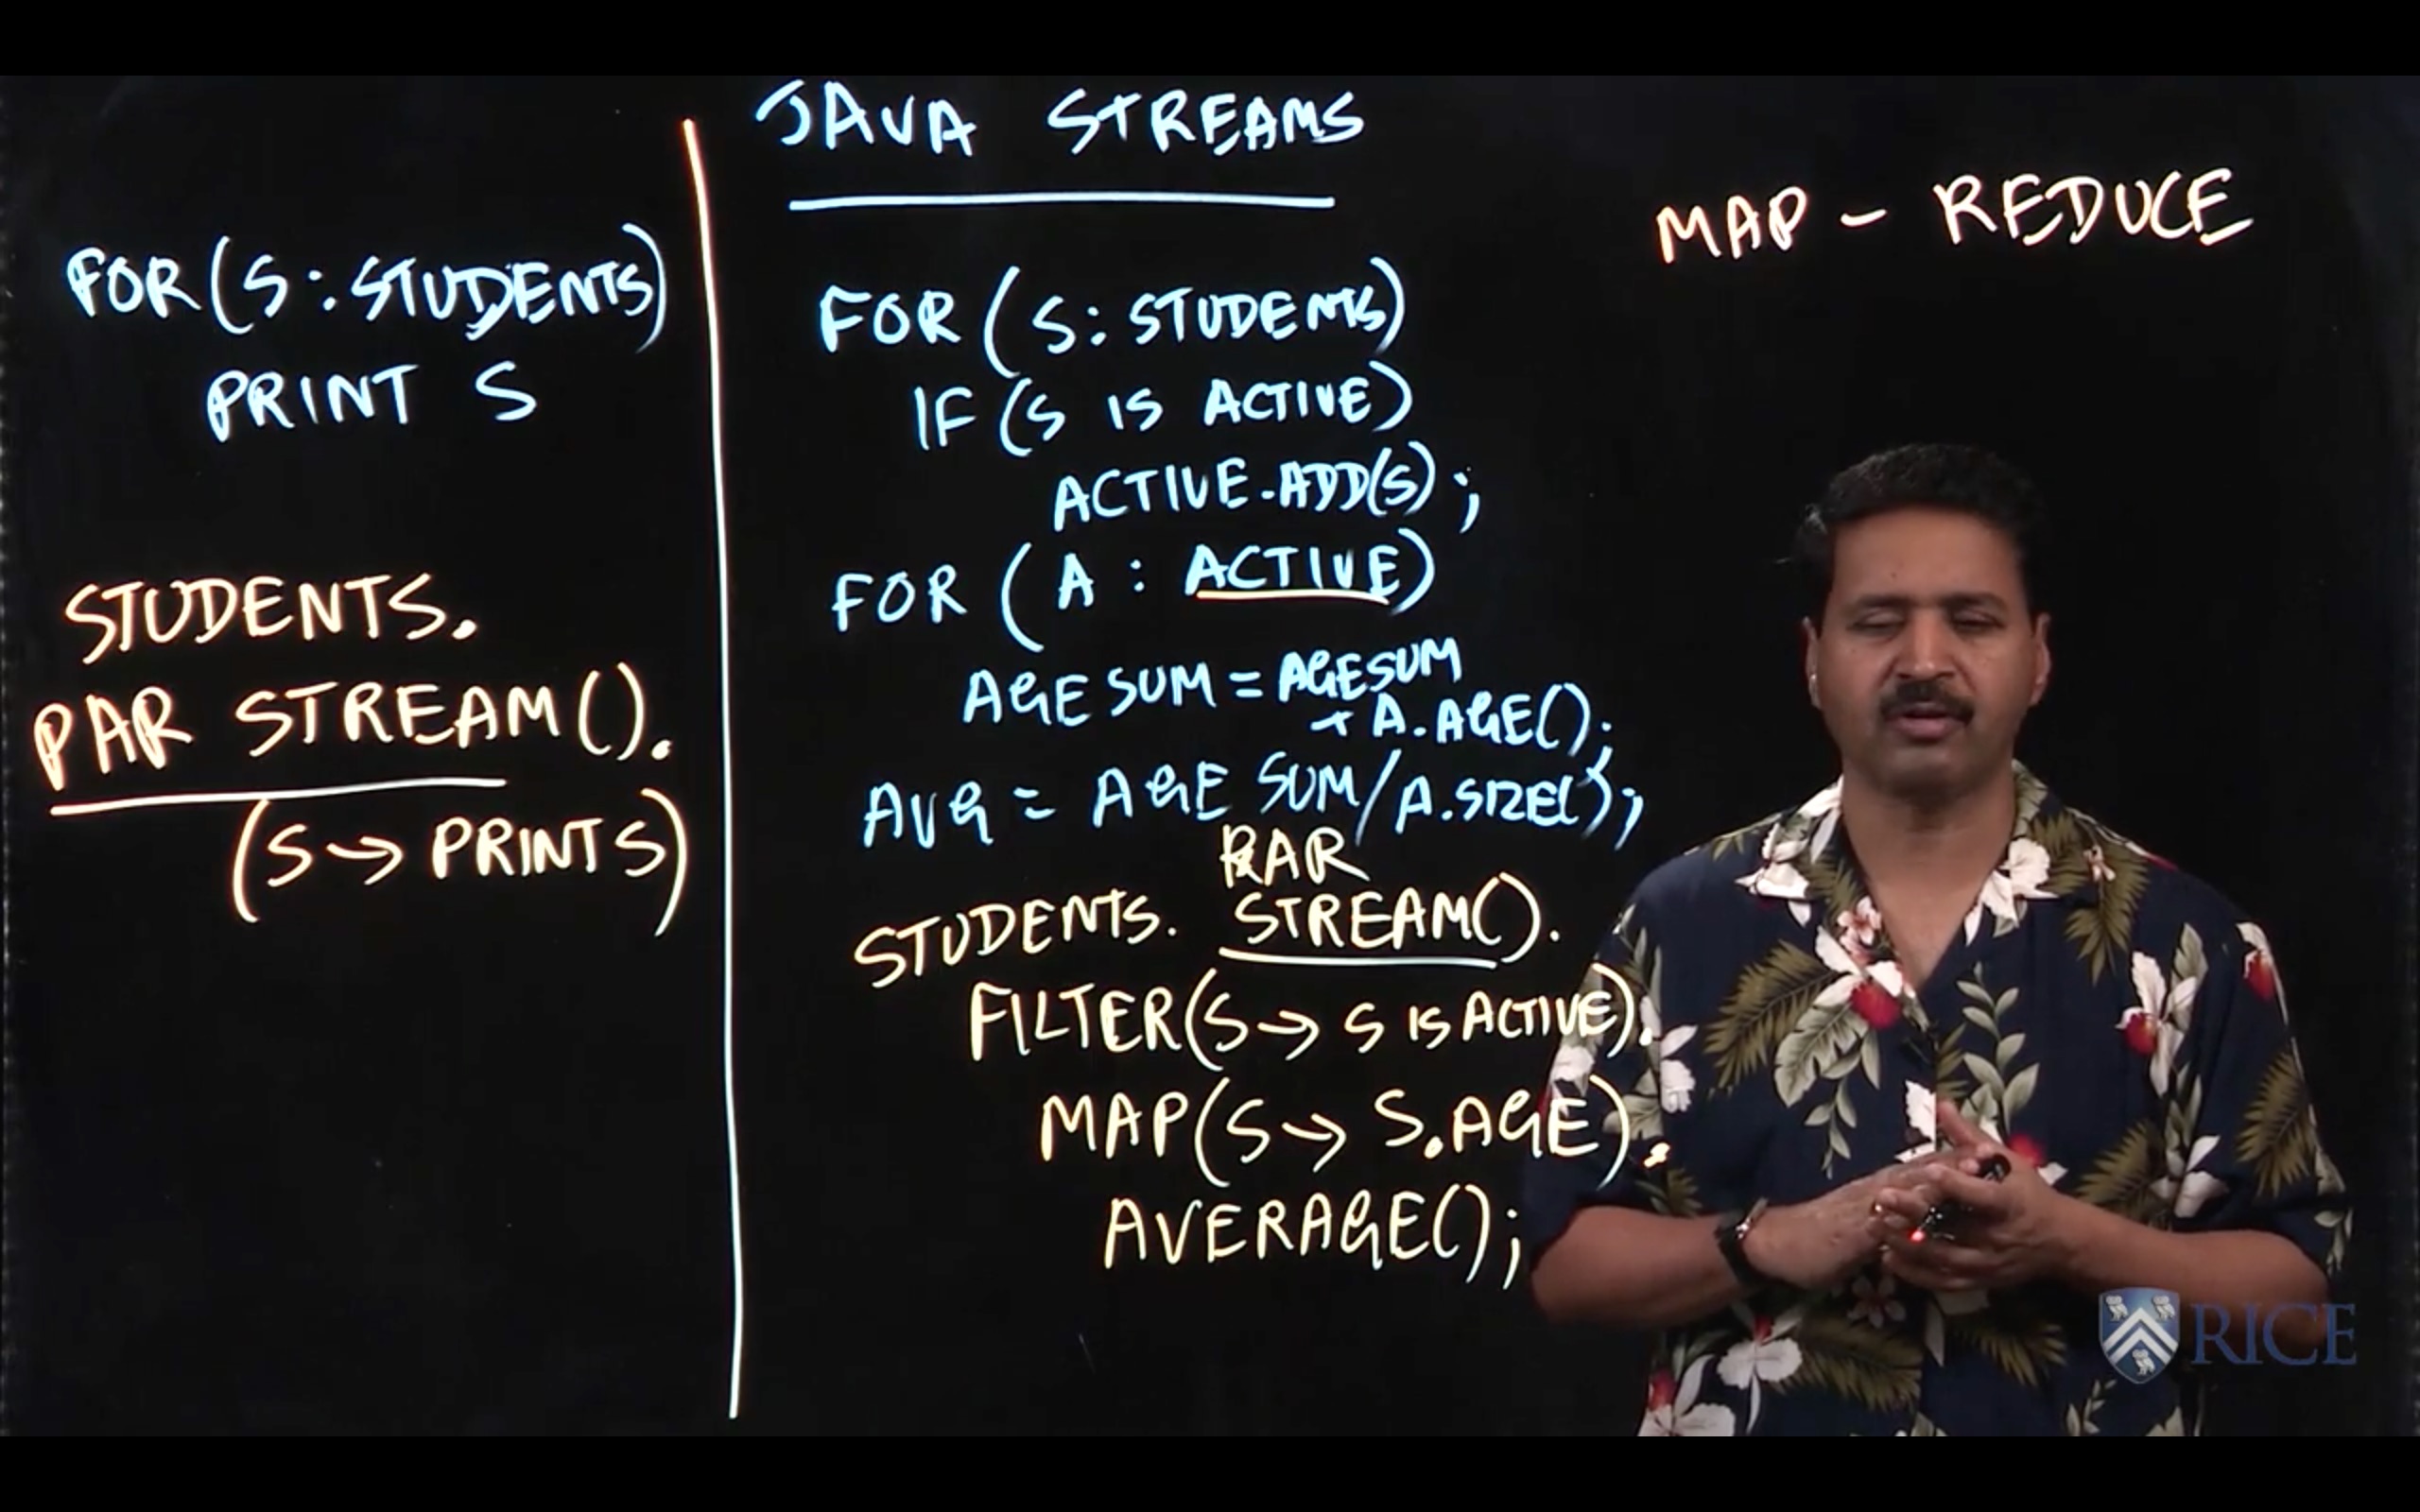 JAVA STREAMS
MAP - REDUCE
FOR (S : STUDENTS)
PRINT S
STUDENTS.
PAR STREAM().
(S → PRINT S)
FOR (S : STUDENTS)
IF (S IS ACTIVE)
ACTIVE.ADD(S);
FOR (A : ACTIVE)
AGE SUM = AGESUM
+ A.AGE();
AVG = AGE SUM/A.SIZE();
PAR
STUDENTS. STREAM().
FILTER(S → S IS ACTIVE).
MAP(S → S.AGE).
AVERAGE();
RICE